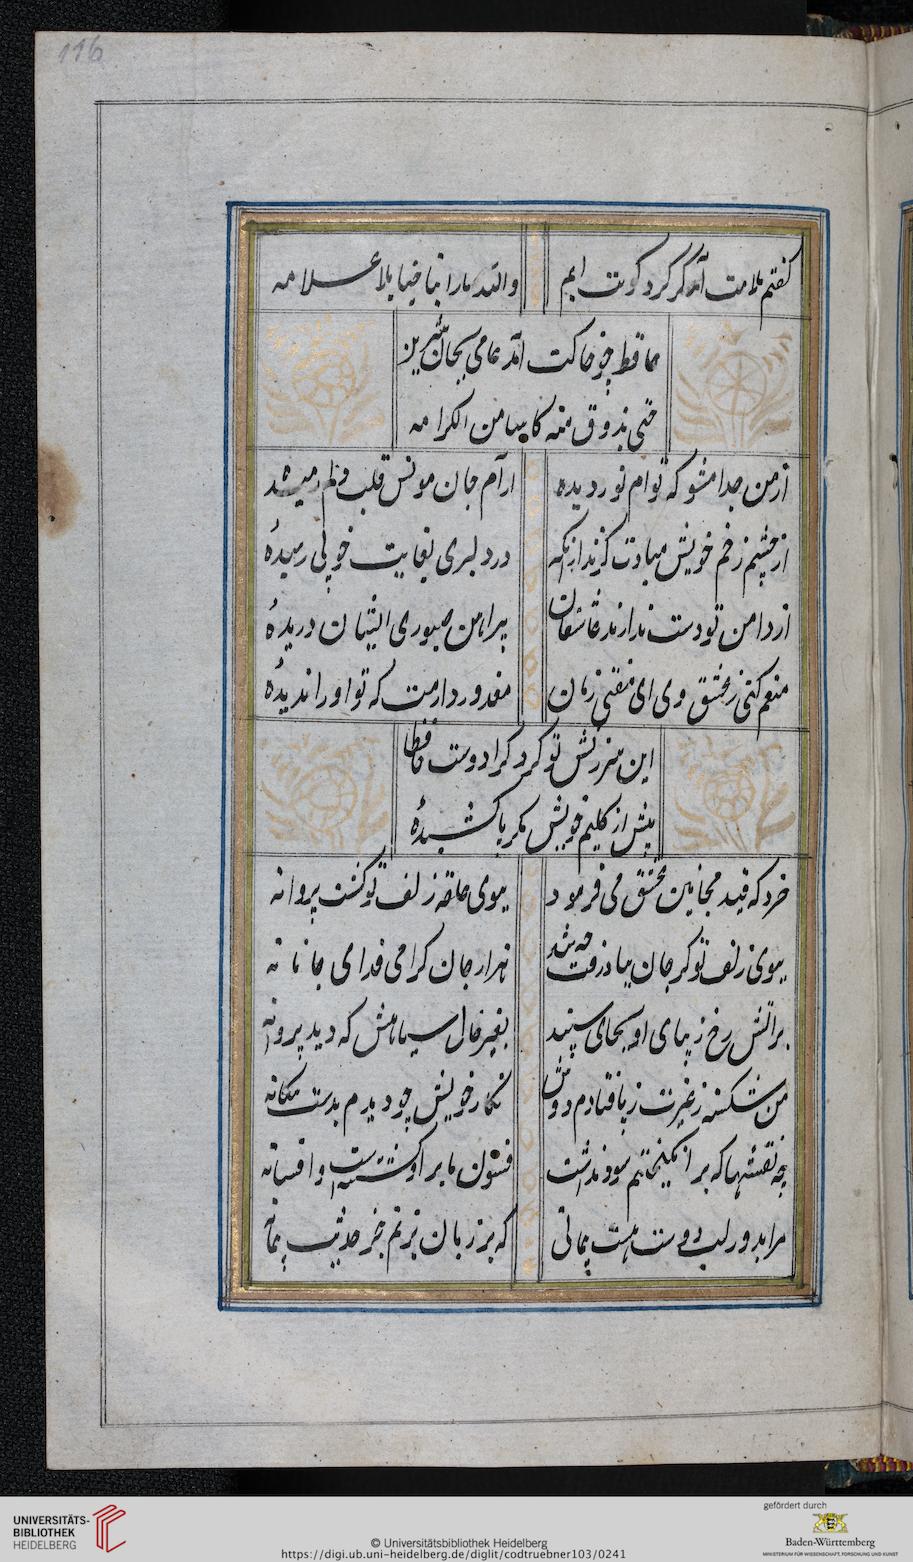 116
گفتم ملامت آمد گر گرد کویت آیم
والله ما راینا حبا بلا ملامه
حافظ چو خاکت آمد جامی بجان شیرین
حتی یذوق منه کاسا من الکرامه
از من جدا مشو که توام نور دیده
آرام جان و مونس قلب رمیده
از چشم زخم خویش مبادت گزند از آنکه
در دلبری بغایت خوبی رسیدهٔ
از دامن تو دست ندارند عاشقان
پیراهن صبوری ایشان دریدهٔ
منعم کنی ز عشق وی ای مفتی زمان
معذور دارمت که تو او را ندیدهٔ
این سرزنش تو کرد کرا دوست حافظا
بیش از گلیم خویش مگر پا کشیدهٔ
خرد که قید مجانین عشق می فرمود
ببوی حلقه زلف تو گشت پروانه
ببوی زلف تو گر جان بباد رفت چه شد
هزار جان گرامی فدای جانانه
بر آتش رخ زیبای او بجای سپند
بغیر خال سیاهش که دید پروانه
من شکسته ز غیرت ز پا فتادم دوش
نگار خویش چو دیدم بدست بیگانه
چه نقشها که بر انگیختیم و سود نداشت
فسون ما بر او گشته است افسانه
مرا بدور لب دوست هست پیمانی
که بر زبان نبرم جز حدیث پیمانه
UNIVERSITÄTS-
BIBLIOTHEK
HEIDELBERG
© Universitätsbibliothek Heidelberg
https://digi.ub.uni-heidelberg.de/diglit/codtruebner103/0241
gefördert durch
Baden-Württemberg
MINISTERIUM FÜR WISSENSCHAFT, FORSCHUNG UND KUNST